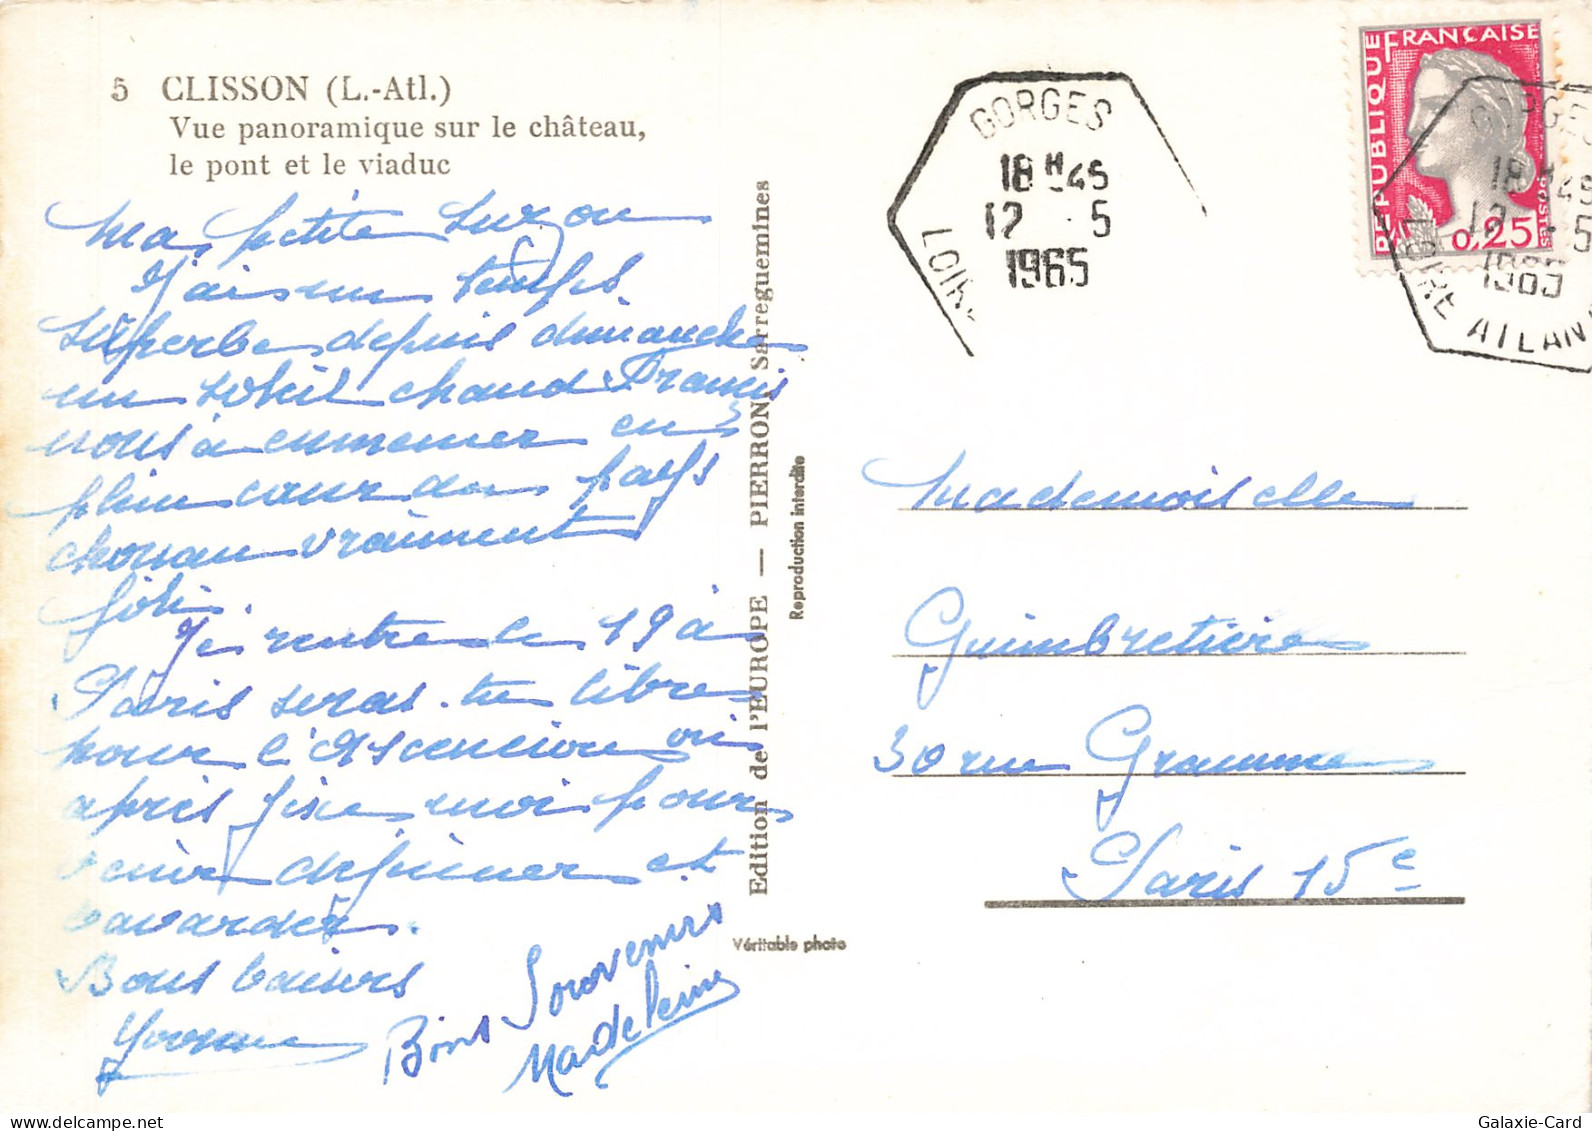 5 CLISSON (L.-Atl.)
Vue panoramique sur le château,
le pont et le viaduc
Ma petite Suzon
J'ai un temps
superbe depuis dimanche
un soleil chaud Francis
nous à emmener en
plein cœur du pays
chouan vraiment
joli.
Je rentre le 19 à
Paris seras-tu libre
pour l'Ascencion ou
après fixe moi pour
venir déjeuner et
bavarder.
Bons baisers
Yvonne
Bons Souvenirs
Madeleine
Edition de l'EUROPE — PIERRON, Sarreguemines
Reproduction interdite
Véritable photo
GORGES
18H45
12 -5
1965
LOIRE
REPUBLIQUE FRANÇAISE
0,25
POSTES
GORGES
18H45
12 -5
1965
LOIRE ATLAN
Mademoiselle
Guimbretière
30 rue Gramme
Paris 15e
Galaxie-Card